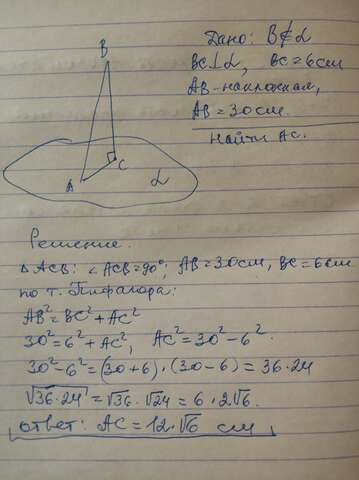 Дано: B∉α
BC⊥α, BC=6см
AB-наклонная,
AB=30см.
Найти AC.
B
C
A
α
Решение.
△ACB: ∠ACB=90°; AB=30см, BC=6см
по т. Пифагора:
AB²=BC²+AC²
30²=6²+AC², AC²=30²-6².
30²-6²=(30+6)·(30-6)=36·24
√36·24=√36·√24=6·2√6.
Ответ: AC=12·√6 см